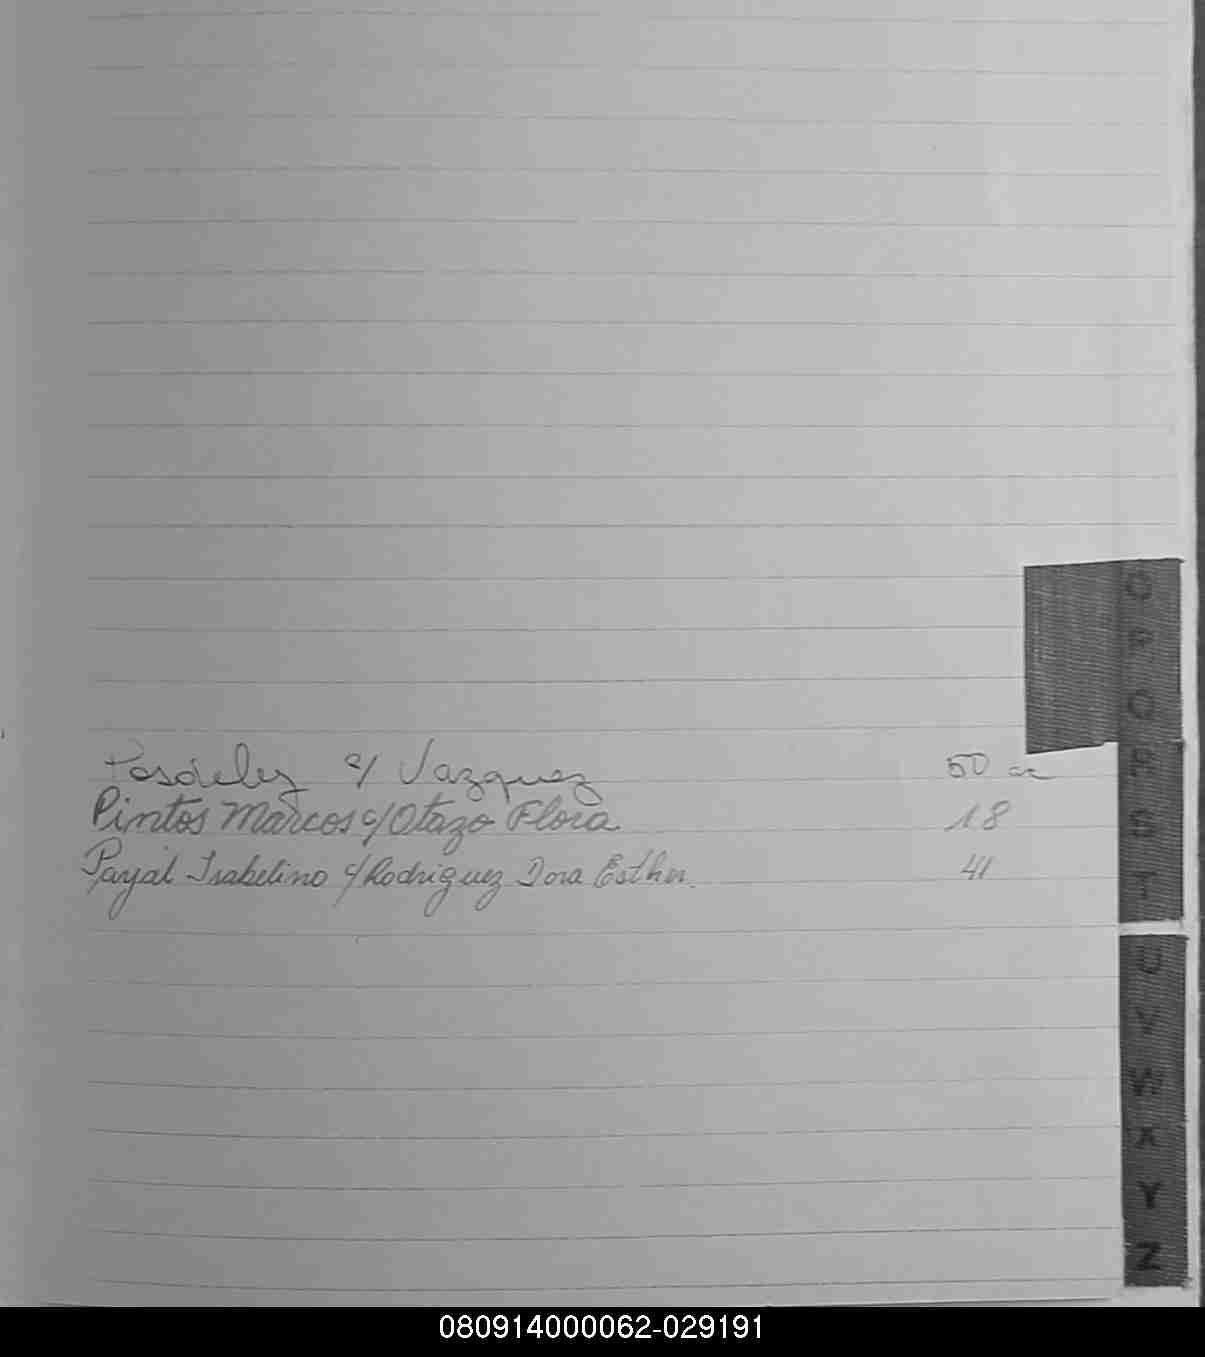 Posdeley c/ Vazquez 50
Pintos Marcos c/ Otazo Flora 18
Payal Isabelino c/ Rodriguez Dora Esther. 41
O
P
Q
R
S
T
U
V
W
X
Y
Z
080914000062-029191